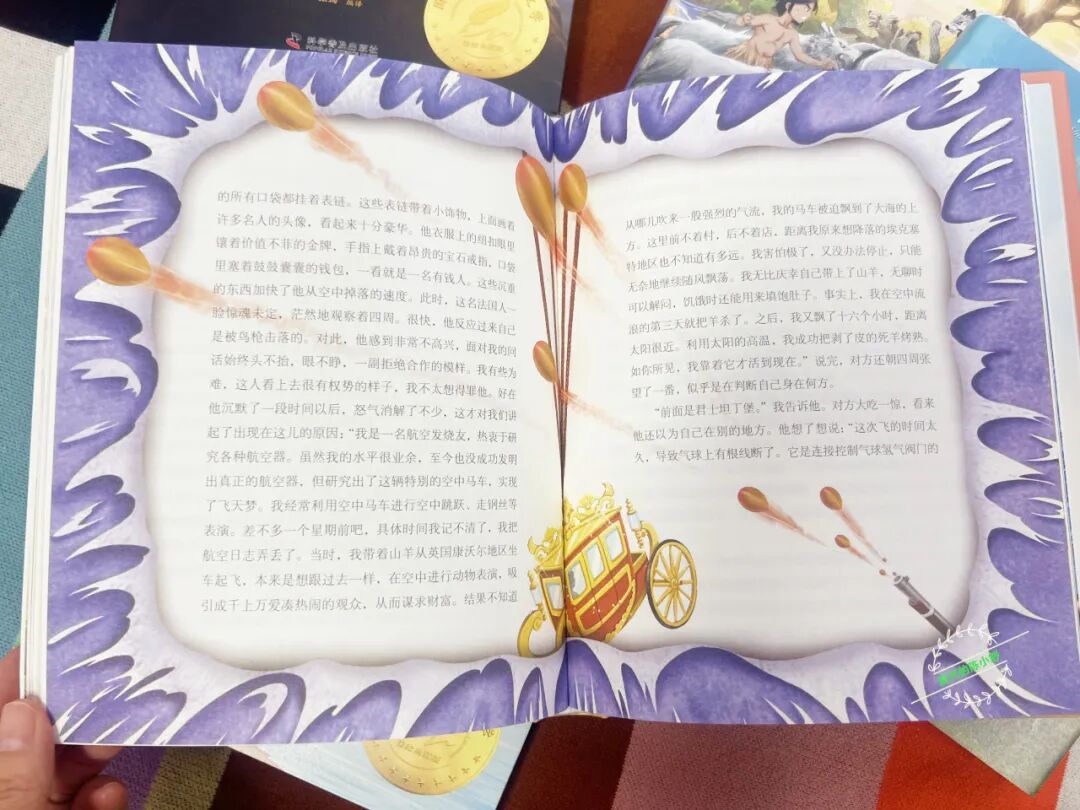 编译
科学普及出版社
的所有口袋都挂着表链。这些表链带着小饰物，上面画着
许多名人的头像，看起来十分豪华。他衣服上的纽扣眼里
镶着价值不菲的金牌，手指上戴着昂贵的宝石戒指，口袋
里塞着鼓鼓囊囊的钱包，一看就是一名有钱人。这些沉重
的东西加快了他从空中掉落的速度。此时，这名法国人一
脸惊魂未定，茫然地观察着四周。很快，他反应过来自己
是被鸟枪击落的。对此，他感到非常不高兴，面对我的问
话始终头不抬，眼不睁，一副拒绝合作的模样。我有些为
难，这人看上去很有权势的样子，我不太想得罪他。好在
他沉默了一段时间以后，怒气消解了不少，这才对我们讲
起了出现在这儿的原因：“我是一名航空发烧友，热衷于研
究各种航空器。虽然我的水平很业余，至今也没成功发明
出真正的航空器，但研究出了这辆特别的空中马车，实现
了飞天梦。我经常利用空中马车进行空中跳跃、走钢丝等
表演。差不多一个星期前吧，具体时间我记不清了，我把
航空日志弄丢了。当时，我带着山羊从英国康沃尔地区坐
车起飞，本来是想跟过去一样，在空中进行动物表演，吸
引成千上万爱凑热闹的观众，从而谋求财富。结果不知道
从哪儿吹来一股强烈的气流，我的马车被迫飘到了大海的上
方。这里前不着村，后不着店，距离我原来想降落的埃克塞
特地区也不知道有多远。我害怕极了，又没办法停止，只能
无奈地继续随风飘荡。我无比庆幸自己带上了山羊，无聊时
可以解闷，饥饿时还能用来填饱肚子。事实上，我在空中流
浪的第三天就把羊杀了。之后，我又飘了十六个小时，距离
太阳很近。利用太阳的高温，我成功把剥了皮的死羊烤熟。
如你所见，我靠着它才活到现在。”说完，对方还朝四周张
望了一番，似乎是在判断自己身在何方。
“前面是君士坦丁堡。”我告诉他。对方大吃一惊，看来
他还以为自己在别的地方。他想了想说：“这次飞的时间太
久，导致气球上有根线断了。它是连接控制气球氢气阀门的